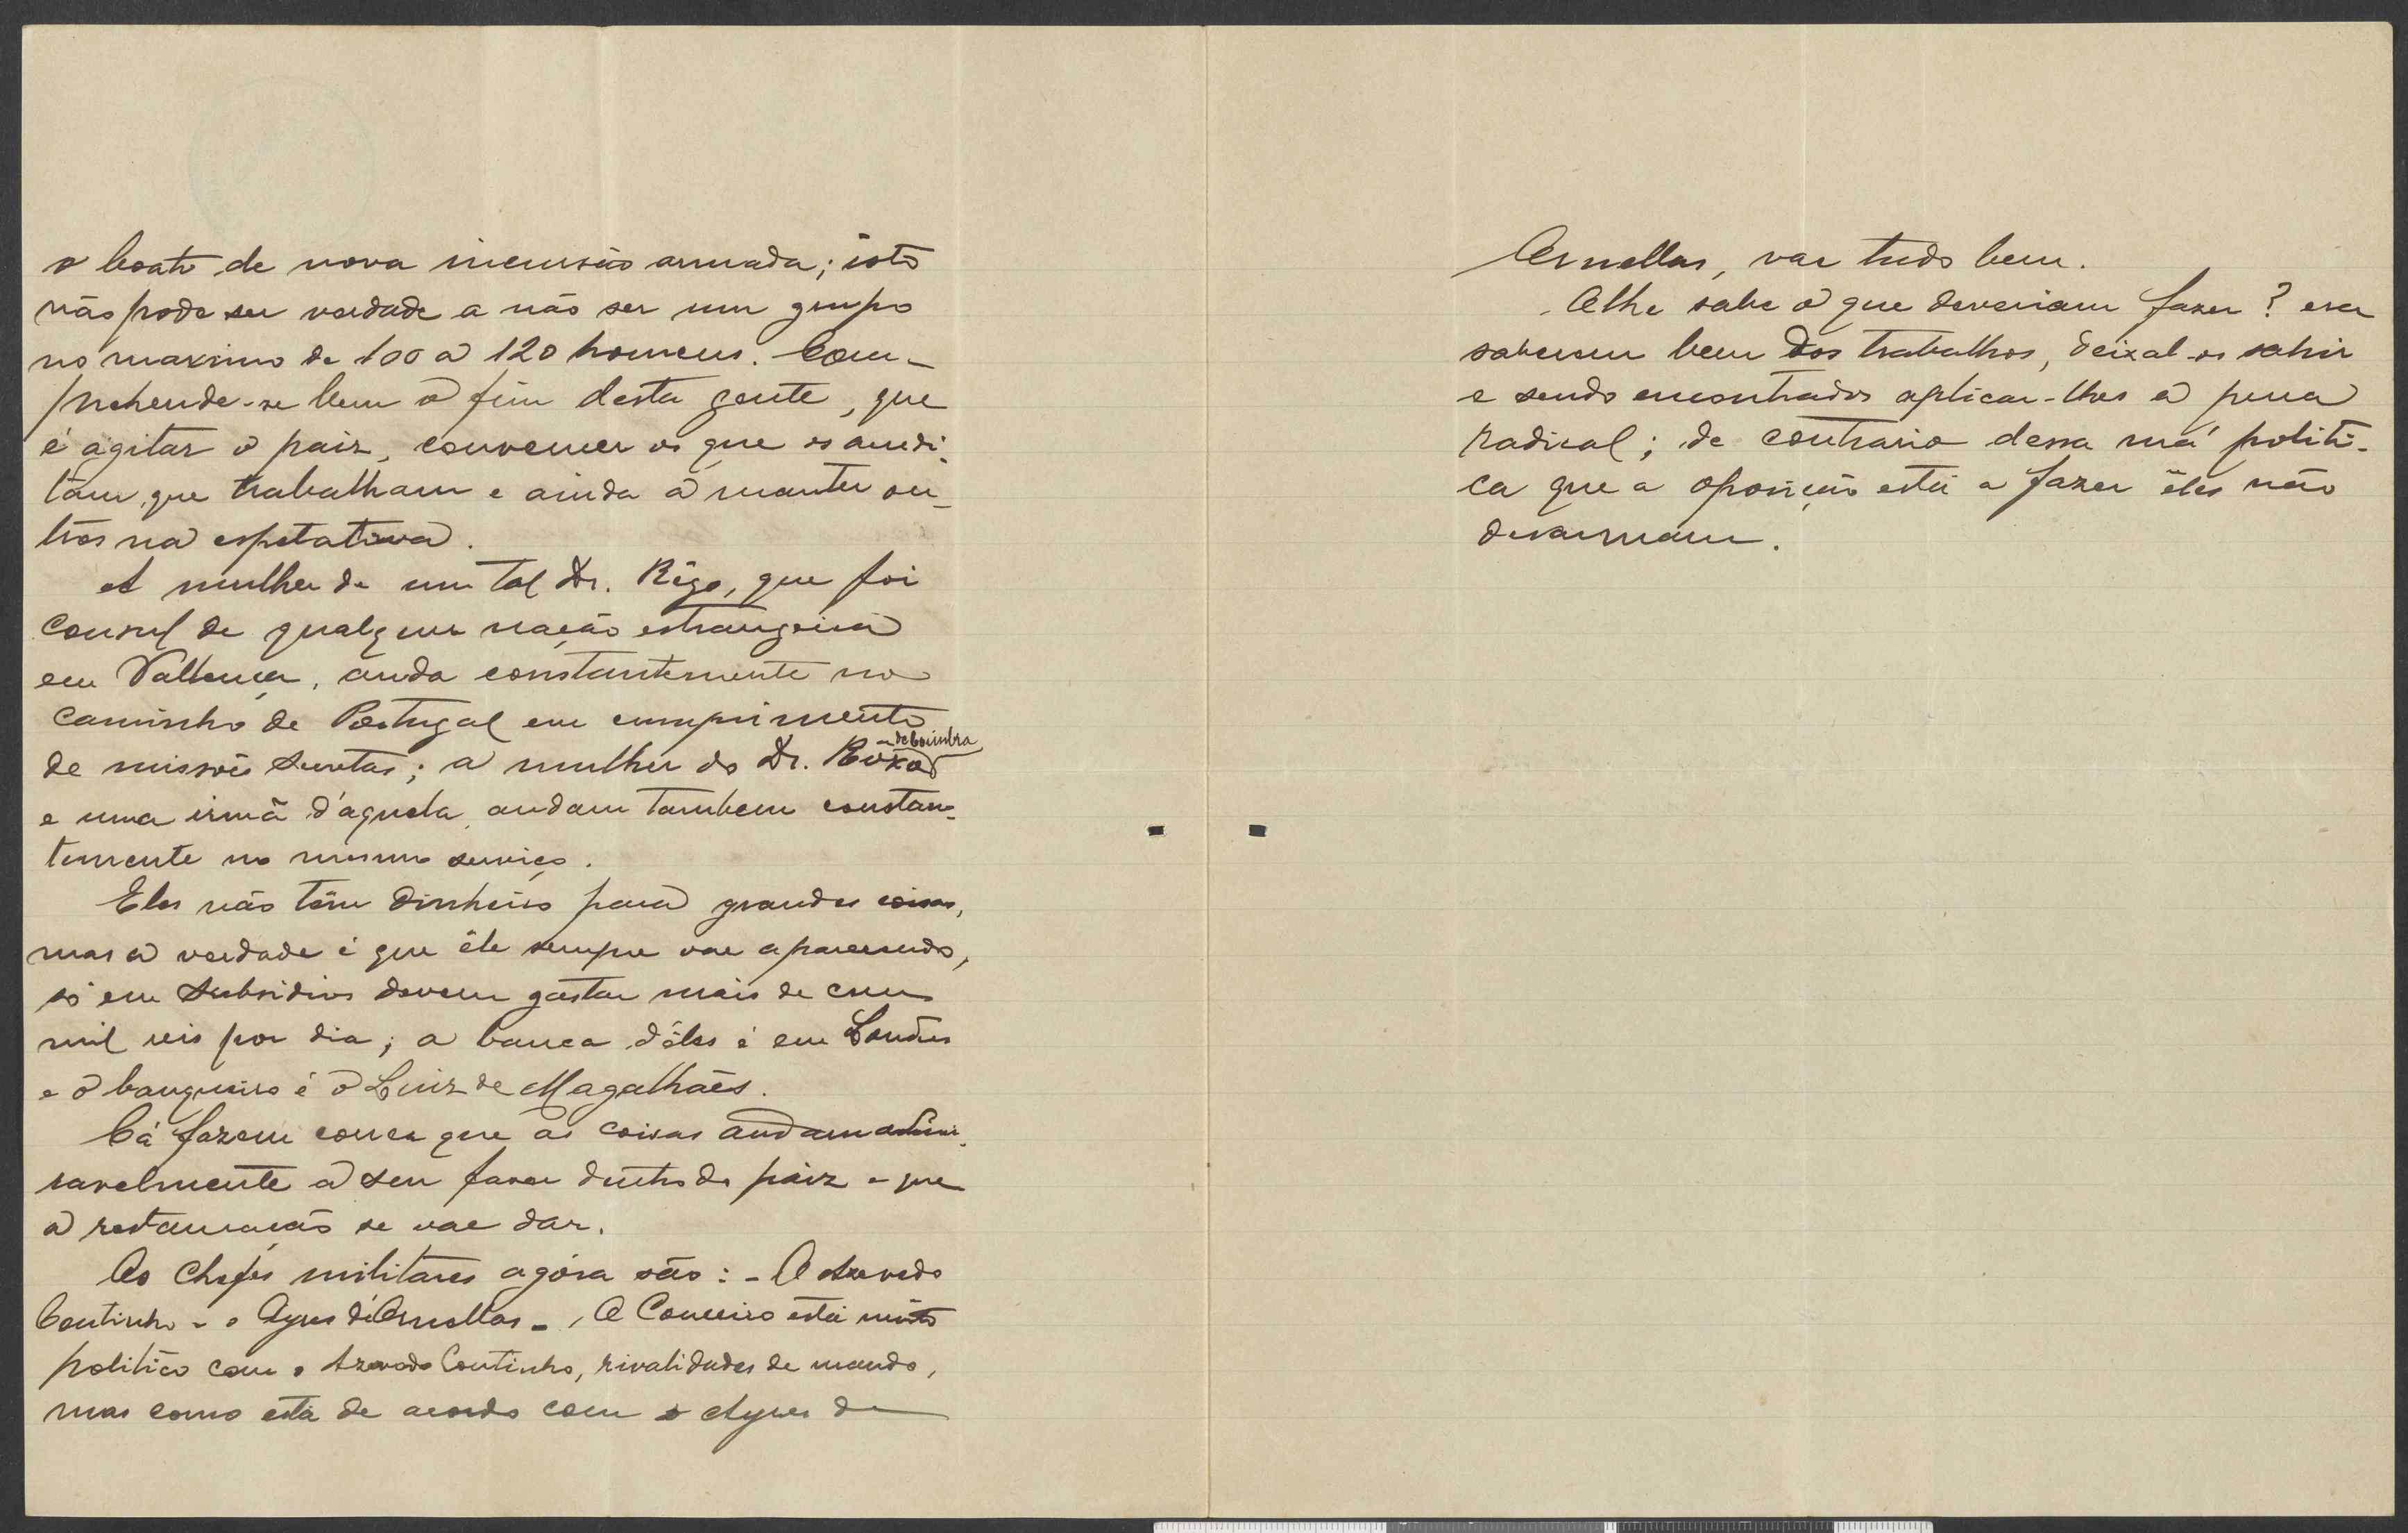 o boato de nova incursão armada; isto
não pode ser verdade a não ser um grupo
no maximo de 100 a 120 homens. Com-
prehende-se bem o fim desta gente, que
é agitar o paiz, convencer os que os acredi-
tam, que trabalham e ainda a manter ou-
tros na espetativa.
A mulher de um tal Dr. Rêgo, que foi
consul de qualquer nação estrangeira
em Vallença, anda constantemente no
caminho de Portugal em cumprimento
de missões secretas; a mulher do Dr.
- de Coimbra
e uma irmã d'aquela, andam tambem constan-
temente no mesmo serviço.
Eles não têm dinheiro para grandes coisas,
mas a verdade é que êle sempre vae aparecendo,
só em subsidios devem gastar mais de cem
mil reis por dia; a banca d'êles é em Londres
e o banqueiro é o Luiz de Magalhães.
Cá fazem correr que as coisas andam admi-
ravelmente a seu favor dentro do paiz e que
a restauração se vae dar.
Os chefes militares agóra são: - O Azevedo
Coutinho - o Ayres d'Ornellas -, O Couceiro está muito
politico com o Azevedo Coutinho, rivalidades de mando,
mas como está de acordo com o Ayres de
Ornellas, vae tudo bem.
Olhe sabe o que deveriam fazer? era
saberem bem dos trabalhos, deixal-os sahir
e sendo encontrados aplicar-lhes a pena
radical; de contrario dessa má politi-
ca que a oposição está a fazer êles não
desarmam.